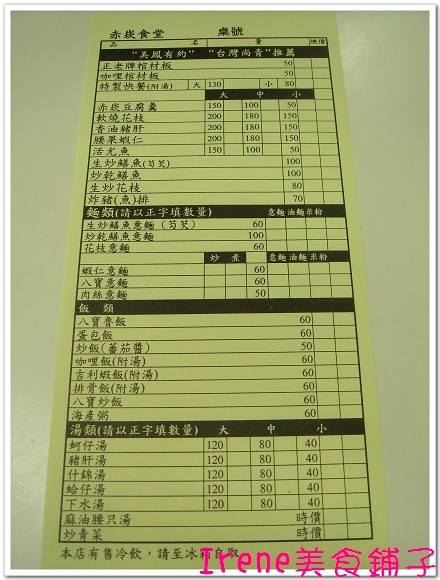 赤崁食堂 桌號
品 名 量 總價
"美鳳有約" "台灣尚青"推薦
正老牌棺材板 50
咖哩棺材板 50
特製快餐(附湯) 大 130 小 80
大 中 小
赤崁豆腐羹 150 100 50
軟燒花枝 200 180 150
香油豬肝 200 180 150
腰果蝦仁 200 180 150
活尤魚 150 100 50
生炒鱔魚(芶芡) 100
炒乾鱔魚 100
生炒花枝 80
炸豬(魚)排 70
麵類(請以正字填數量) 意麵 油麵 米粉
生炒鱔魚意麵(芶芡) 60
炒乾鱔魚意麵 100
花枝意麵 60
炒 煮 意麵 油麵 米粉
蝦仁意麵 60
八寶意麵 60
肉絲意麵 50
飯 類
八寶魯飯 60
蛋包飯 60
炒飯(蕃茄醬) 50
咖哩飯(附湯) 60
吉利蝦飯(附湯) 60
排骨飯(附湯) 60
八寶炒飯 60
海產粥 60
湯類(請以正字填數量) 大 中 小
蚵仔湯 120 80 40
豬肝湯 120 80 40
什錦湯 120 80 40
蛤仔湯 120 80 40
下水湯 120 80 40
麻油腰只湯 時價
炒青菜 時價
本店有售冷飲,請至冰箱自取
Irene美食鋪子